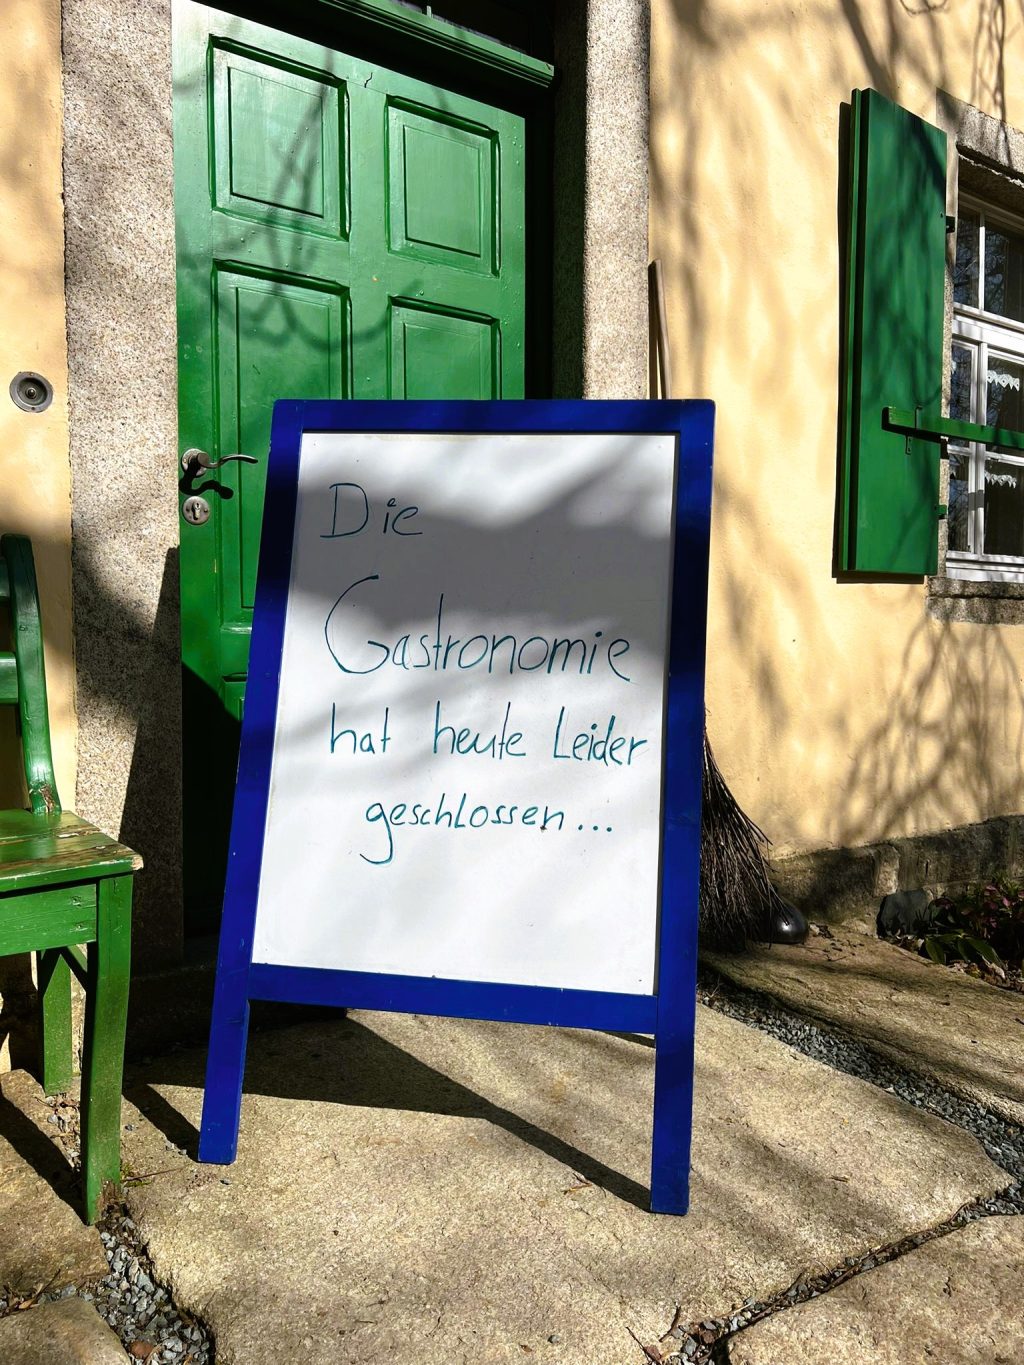 Die
Gastronomie
hat heute Leider
geschlossen...